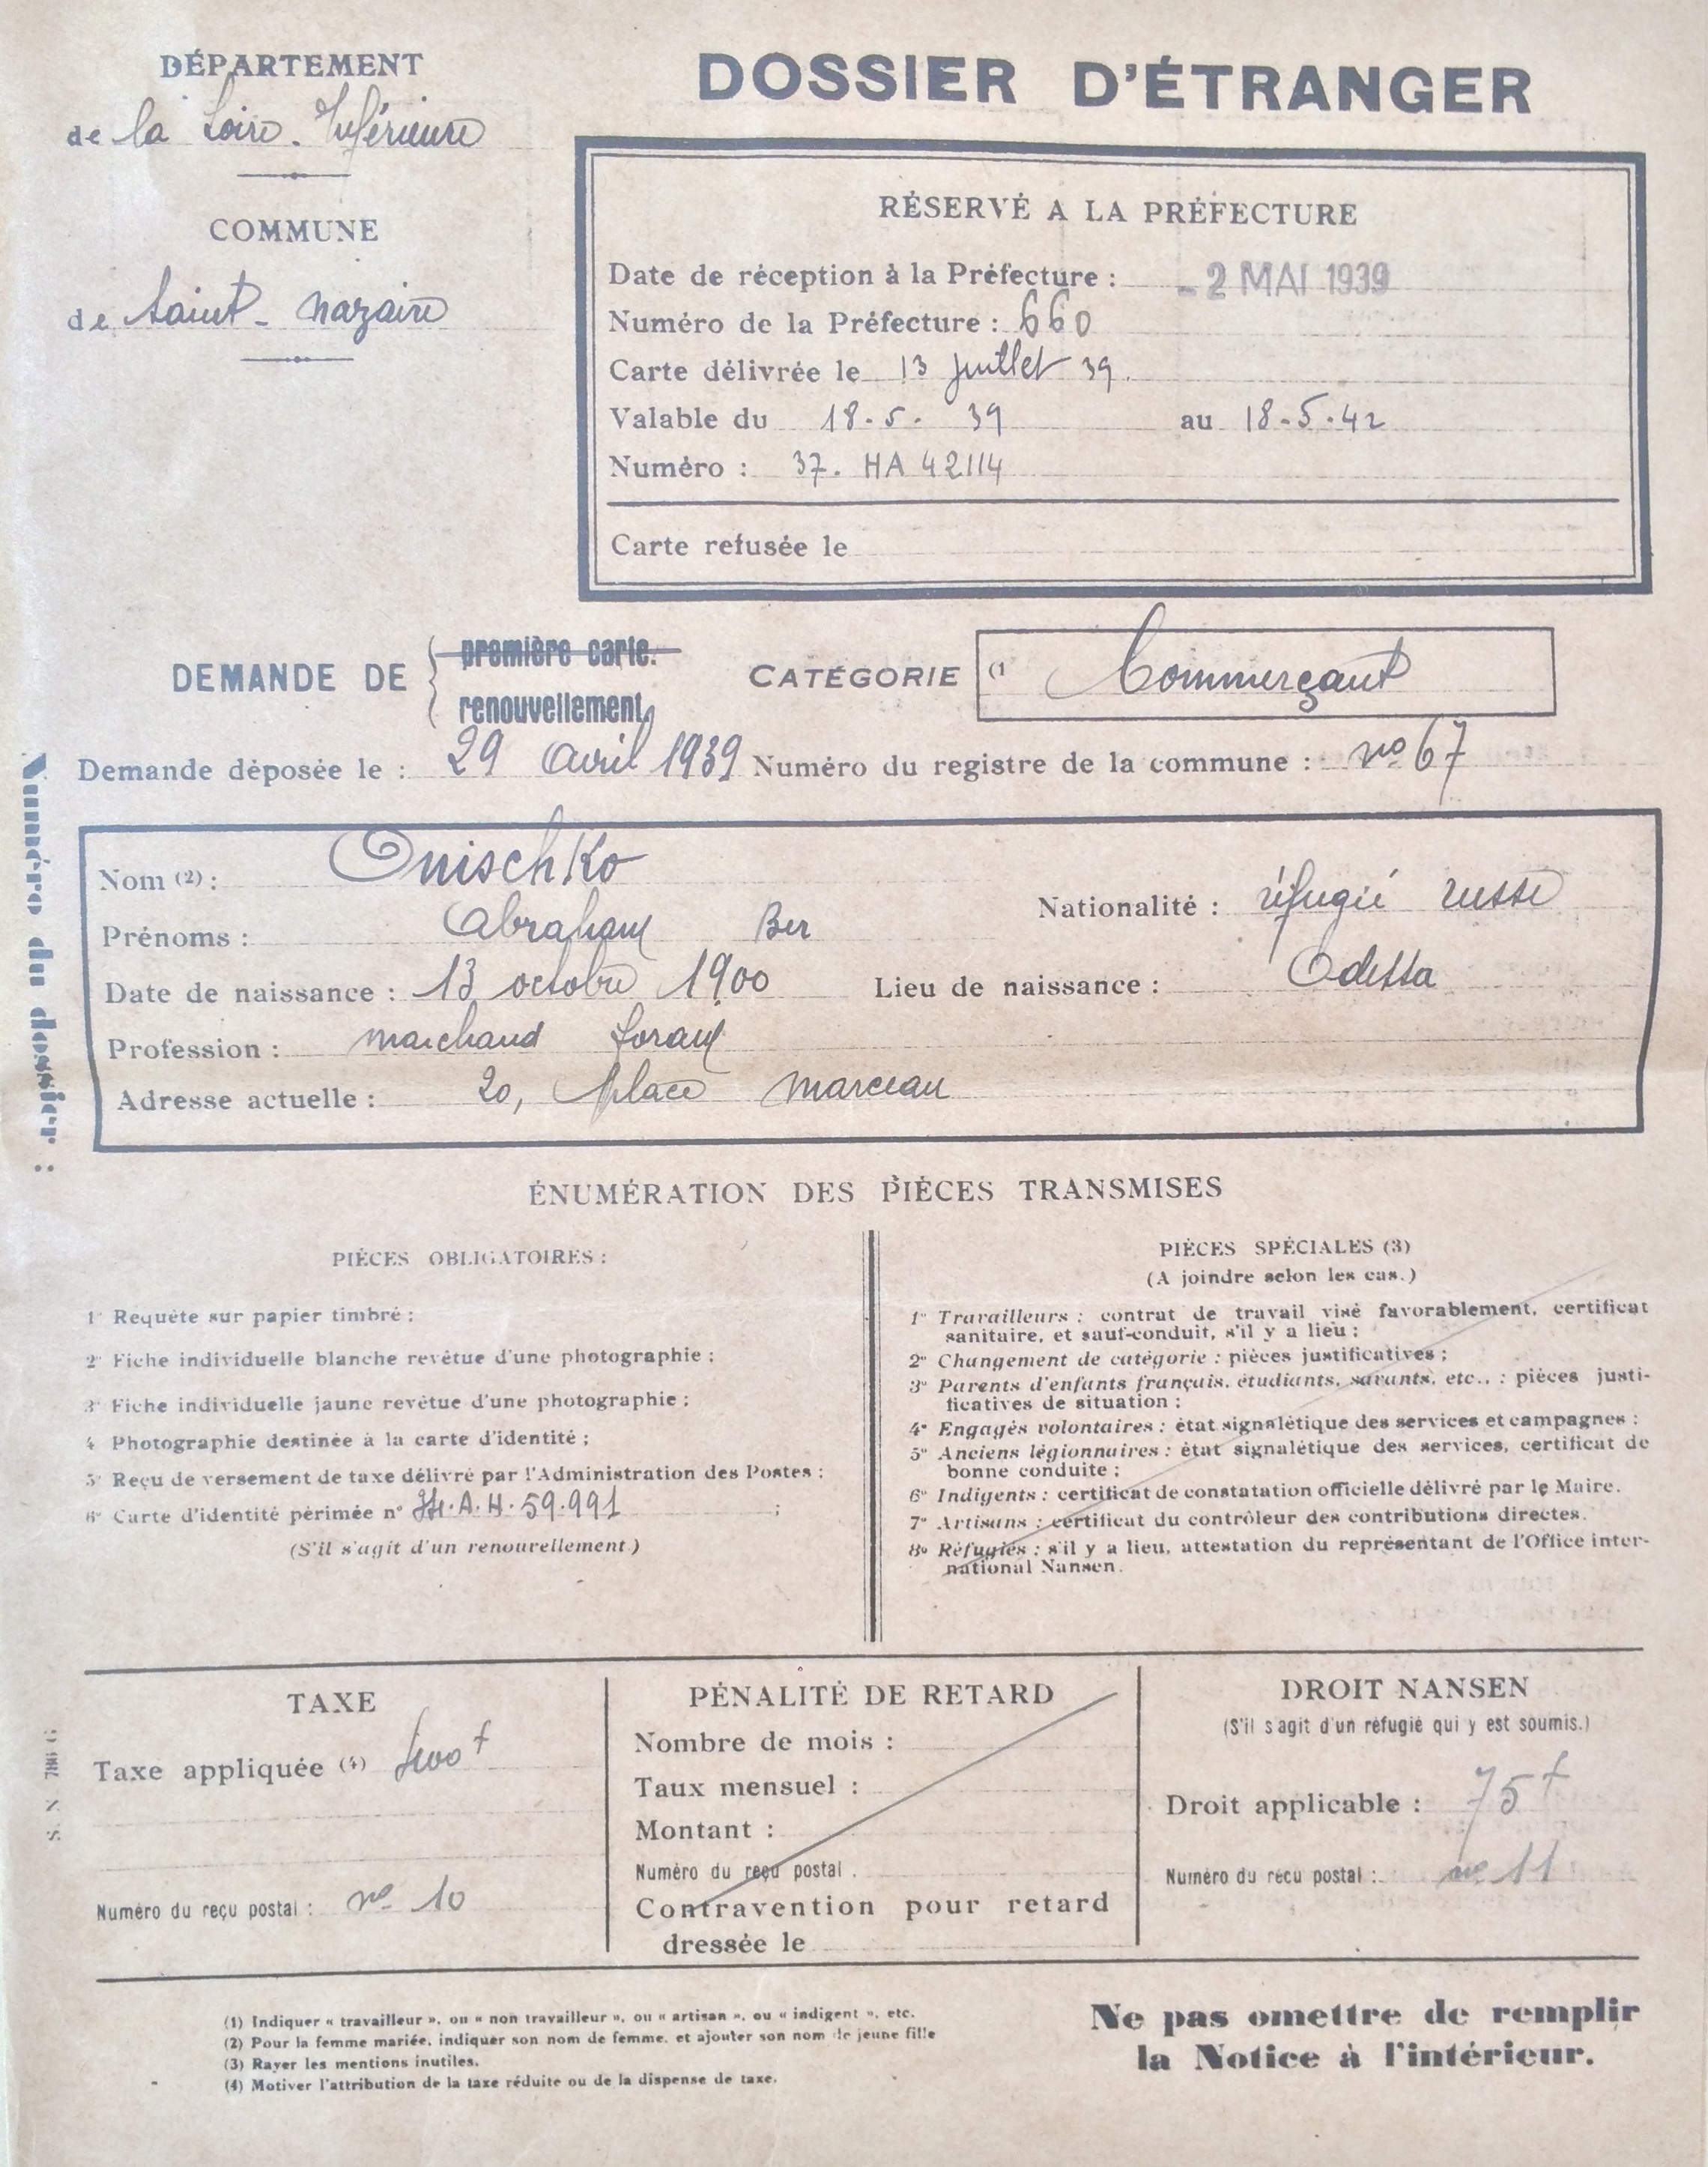 DÉPARTEMENT
de la Loire-Inférieure
COMMUNE
de Saint-Nazaire
DOSSIER D'ÉTRANGER
RÉSERVÉ A LA PRÉFECTURE
Date de réception à la Préfecture : -2 MAI 1939
Numéro de la Préfecture : 660
Carte délivrée le 13 juillet 39.
Valable du 18.5.39 au 18.5.42
Numéro : 37. HA 42114
Carte refusée le
DEMANDE DE
première carte.
renouvellement
CATÉGORIE (1 Commerçant
Demande déposée le : 29 avril 1939 Numéro du registre de la commune : no 67
Numéro du dossier :
Nom (2) : Onischko
Prénoms : Abraham Ber
Nationalité : réfugié russe
Date de naissance : 13 octobre 1900 Lieu de naissance : Odessa
Profession : marchand forain
Adresse actuelle : 20, Place Marceau
ÉNUMÉRATION DES PIÈCES TRANSMISES
PIÈCES OBLIGATOIRES :
1° Requête sur papier timbré ;
2° Fiche individuelle blanche revêtue d'une photographie ;
3° Fiche individuelle jaune revêtue d'une photographie ;
4 Photographie destinée à la carte d'identité ;
5° Reçu de versement de taxe délivré par l'Administration des Postes ;
6° Carte d'identité périmée n° A.H.59.991 ;
(S'il s'agit d'un renouvellement.)
PIÈCES SPÉCIALES (3)
(A joindre selon les cas.)
1° Travailleurs : contrat de travail visé favorablement, certificat
sanitaire, et sauf-conduit, s'il y a lieu ;
2° Changement de catégorie : pièces justificatives ;
3° Parents d'enfants français, étudiants, savants, etc., : pièces justi-
ficatives de situation ;
4° Engagés volontaires : état signalétique des services et campagnes ;
5° Anciens légionnaires : état signalétique des services, certificat de
bonne conduite ;
6° Indigents : certificat de constatation officielle délivré par le Maire.
7° Artisans : certificat du contrôleur des contributions directes.
8° Réfugiés : s'il y a lieu, attestation du représentant de l'Office inter-
national Nansen.
TAXE
Taxe appliquée (4)
Numéro du reçu postal : no 10
PÉNALITÉ DE RETARD
Nombre de mois :
Taux mensuel :
Montant :
Numéro du reçu postal .
Contravention pour retard
dressée le
DROIT NANSEN
(S'il s'agit d'un réfugié qui y est soumis.)
Droit applicable : 75 f
Numéro du reçu postal : no 11
(1) Indiquer « travailleur », ou « non travailleur », ou « artisan », ou « indigent », etc.
(2) Pour la femme mariée, indiquer son nom de femme, et ajouter son nom de jeune fille
(3) Rayer les mentions inutiles.
(4) Motiver l'attribution de la taxe réduite ou de la dispense de taxe.
Ne pas omettre de remplir
la Notice à l'intérieur.